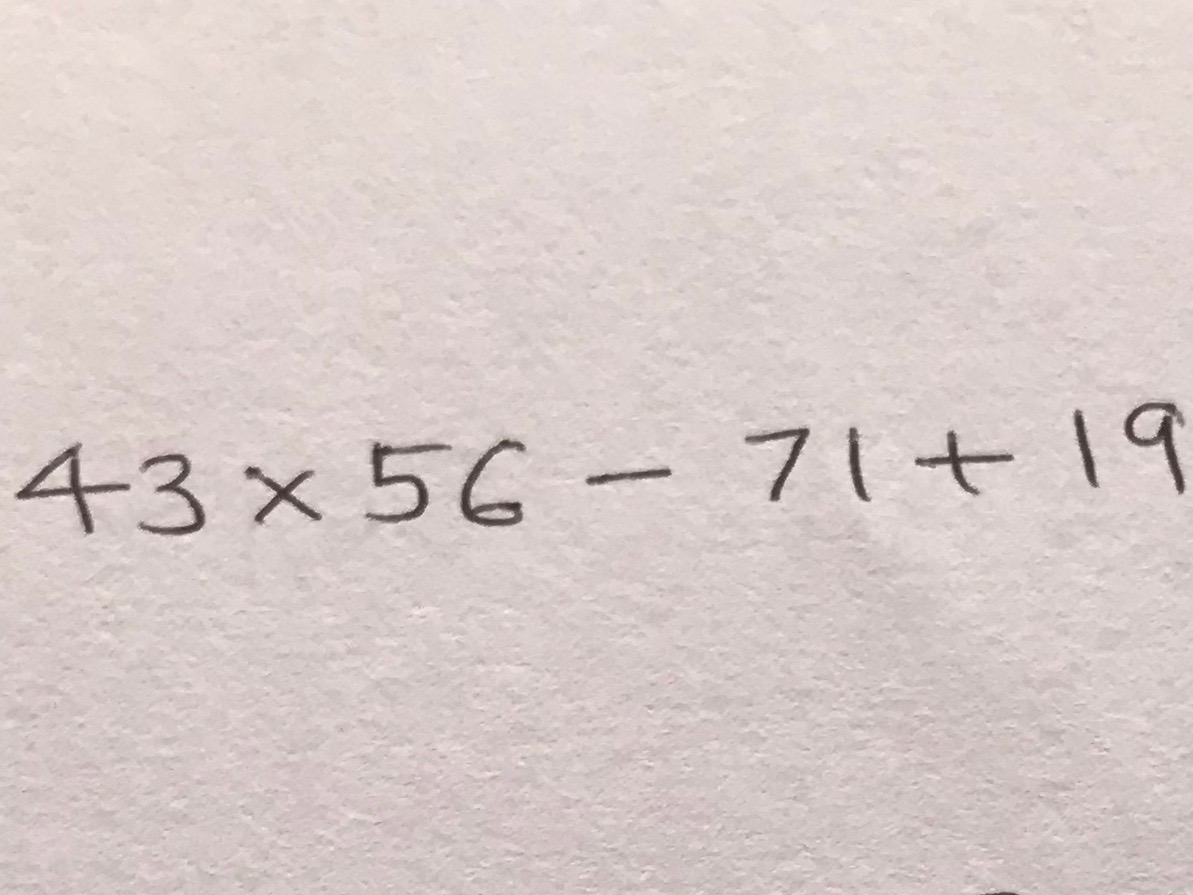 43 × 56 - 71 + 19